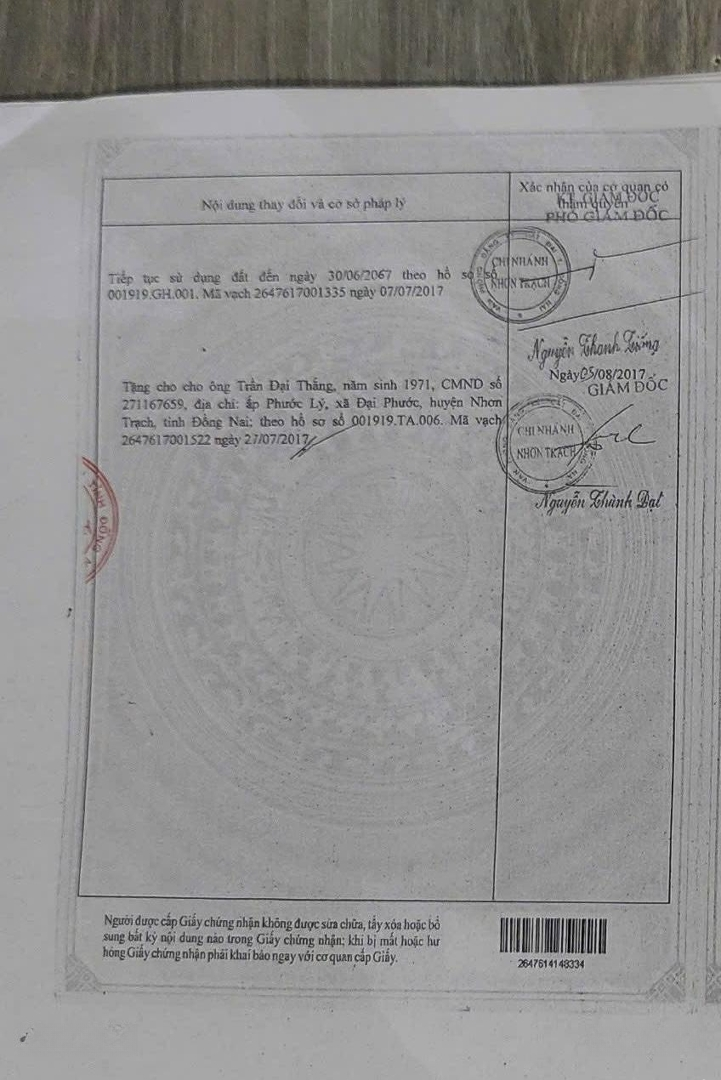 Nội dung thay đổi và cơ sở pháp lý
Xác nhận của cơ quan có
thẩm quyền
KT GIÁM ĐỐC
PHÓ GIÁM ĐỐC
Tiếp tục sử dụng đất đến ngày 30/06/2067 theo hồ sơ số
001919.GH.001. Mã vạch 2647617001335 ngày 07/07/2017
CHI NHÁNH
NHƠN TRẠCH
Nguyễn Thanh Tiếng
Tặng cho cho ông Trần Đại Thắng, năm sinh 1971, CMND số
271167659, địa chỉ: ấp Phước Lý, xã Đại Phước, huyện Nhơn
Trạch, tỉnh Đồng Nai; theo hồ sơ số 001919.TA.006. Mã vạch
2647617001522 ngày 27/07/2017
Ngày 03/08/2017
GIÁM ĐỐC
CHI NHÁNH
NHƠN TRẠCH
Nguyễn Thành Đạt
TỈNH ĐỒNG
Người được cấp Giấy chứng nhận không được sửa chữa, tẩy xóa hoặc bổ
sung bất kỳ nội dung nào trong Giấy chứng nhận; khi bị mất hoặc hư
hỏng Giấy chứng nhận phải khai báo ngay với cơ quan cấp Giấy.
2647614148334